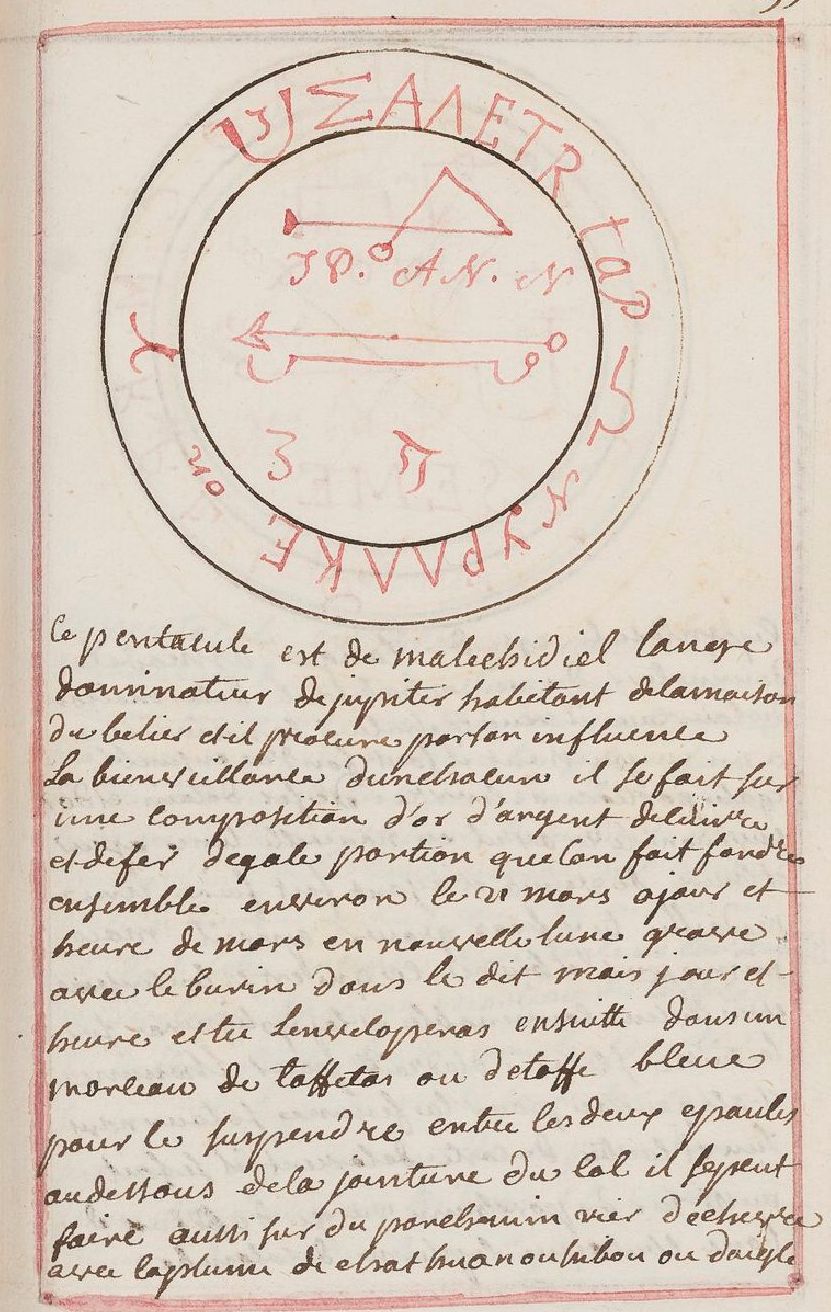 ΣΑΛΕΤR
tap
JP. AN. N
Ce pentacule est de malchidiel lange
dominateur de jupiter habitant delamaison
du belier etil procure parson influence
La bienveillance dunchacun il se fait sur
une composition d'or d'argent decuivre
et defer degale portion quelon fait fondre
ensemble environ le 21 mars ajour et
heure de mars en nouvelle lune grave
avec leburin dans le dit mois jour et
heure ettu Lenveloperas ensuitte dansun
morceau de taffetas ou detoffe bleue
pour le suspendre entre lesdeux epaules
audessous dela jointure du col il sepeut
faire aussi sur du parchemin vier dechevre
avec laplume de chathuanouhibou ou daigle